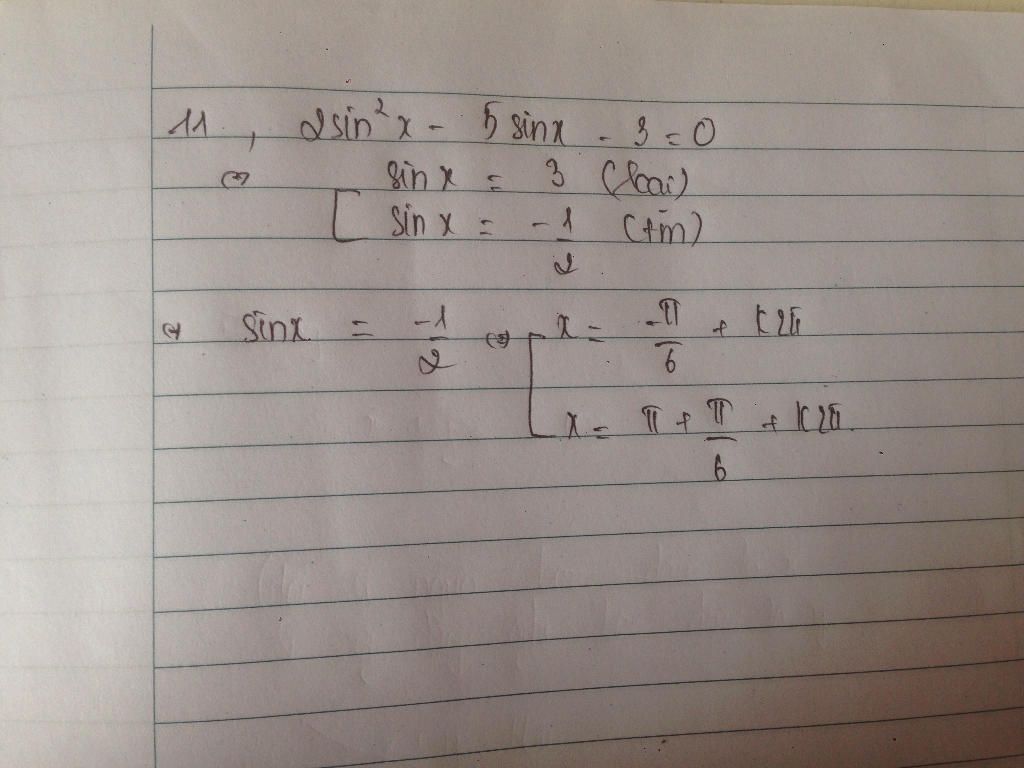 11, 2sin²x - 5 sinx - 3 = 0
⇔ [ sin x = 3 (loại)
sin x = -1/2 (tm)
⇔ sinx = -1/2 ⇔ [ x = -π/6 + k2π
x = π + π/6 + k2π